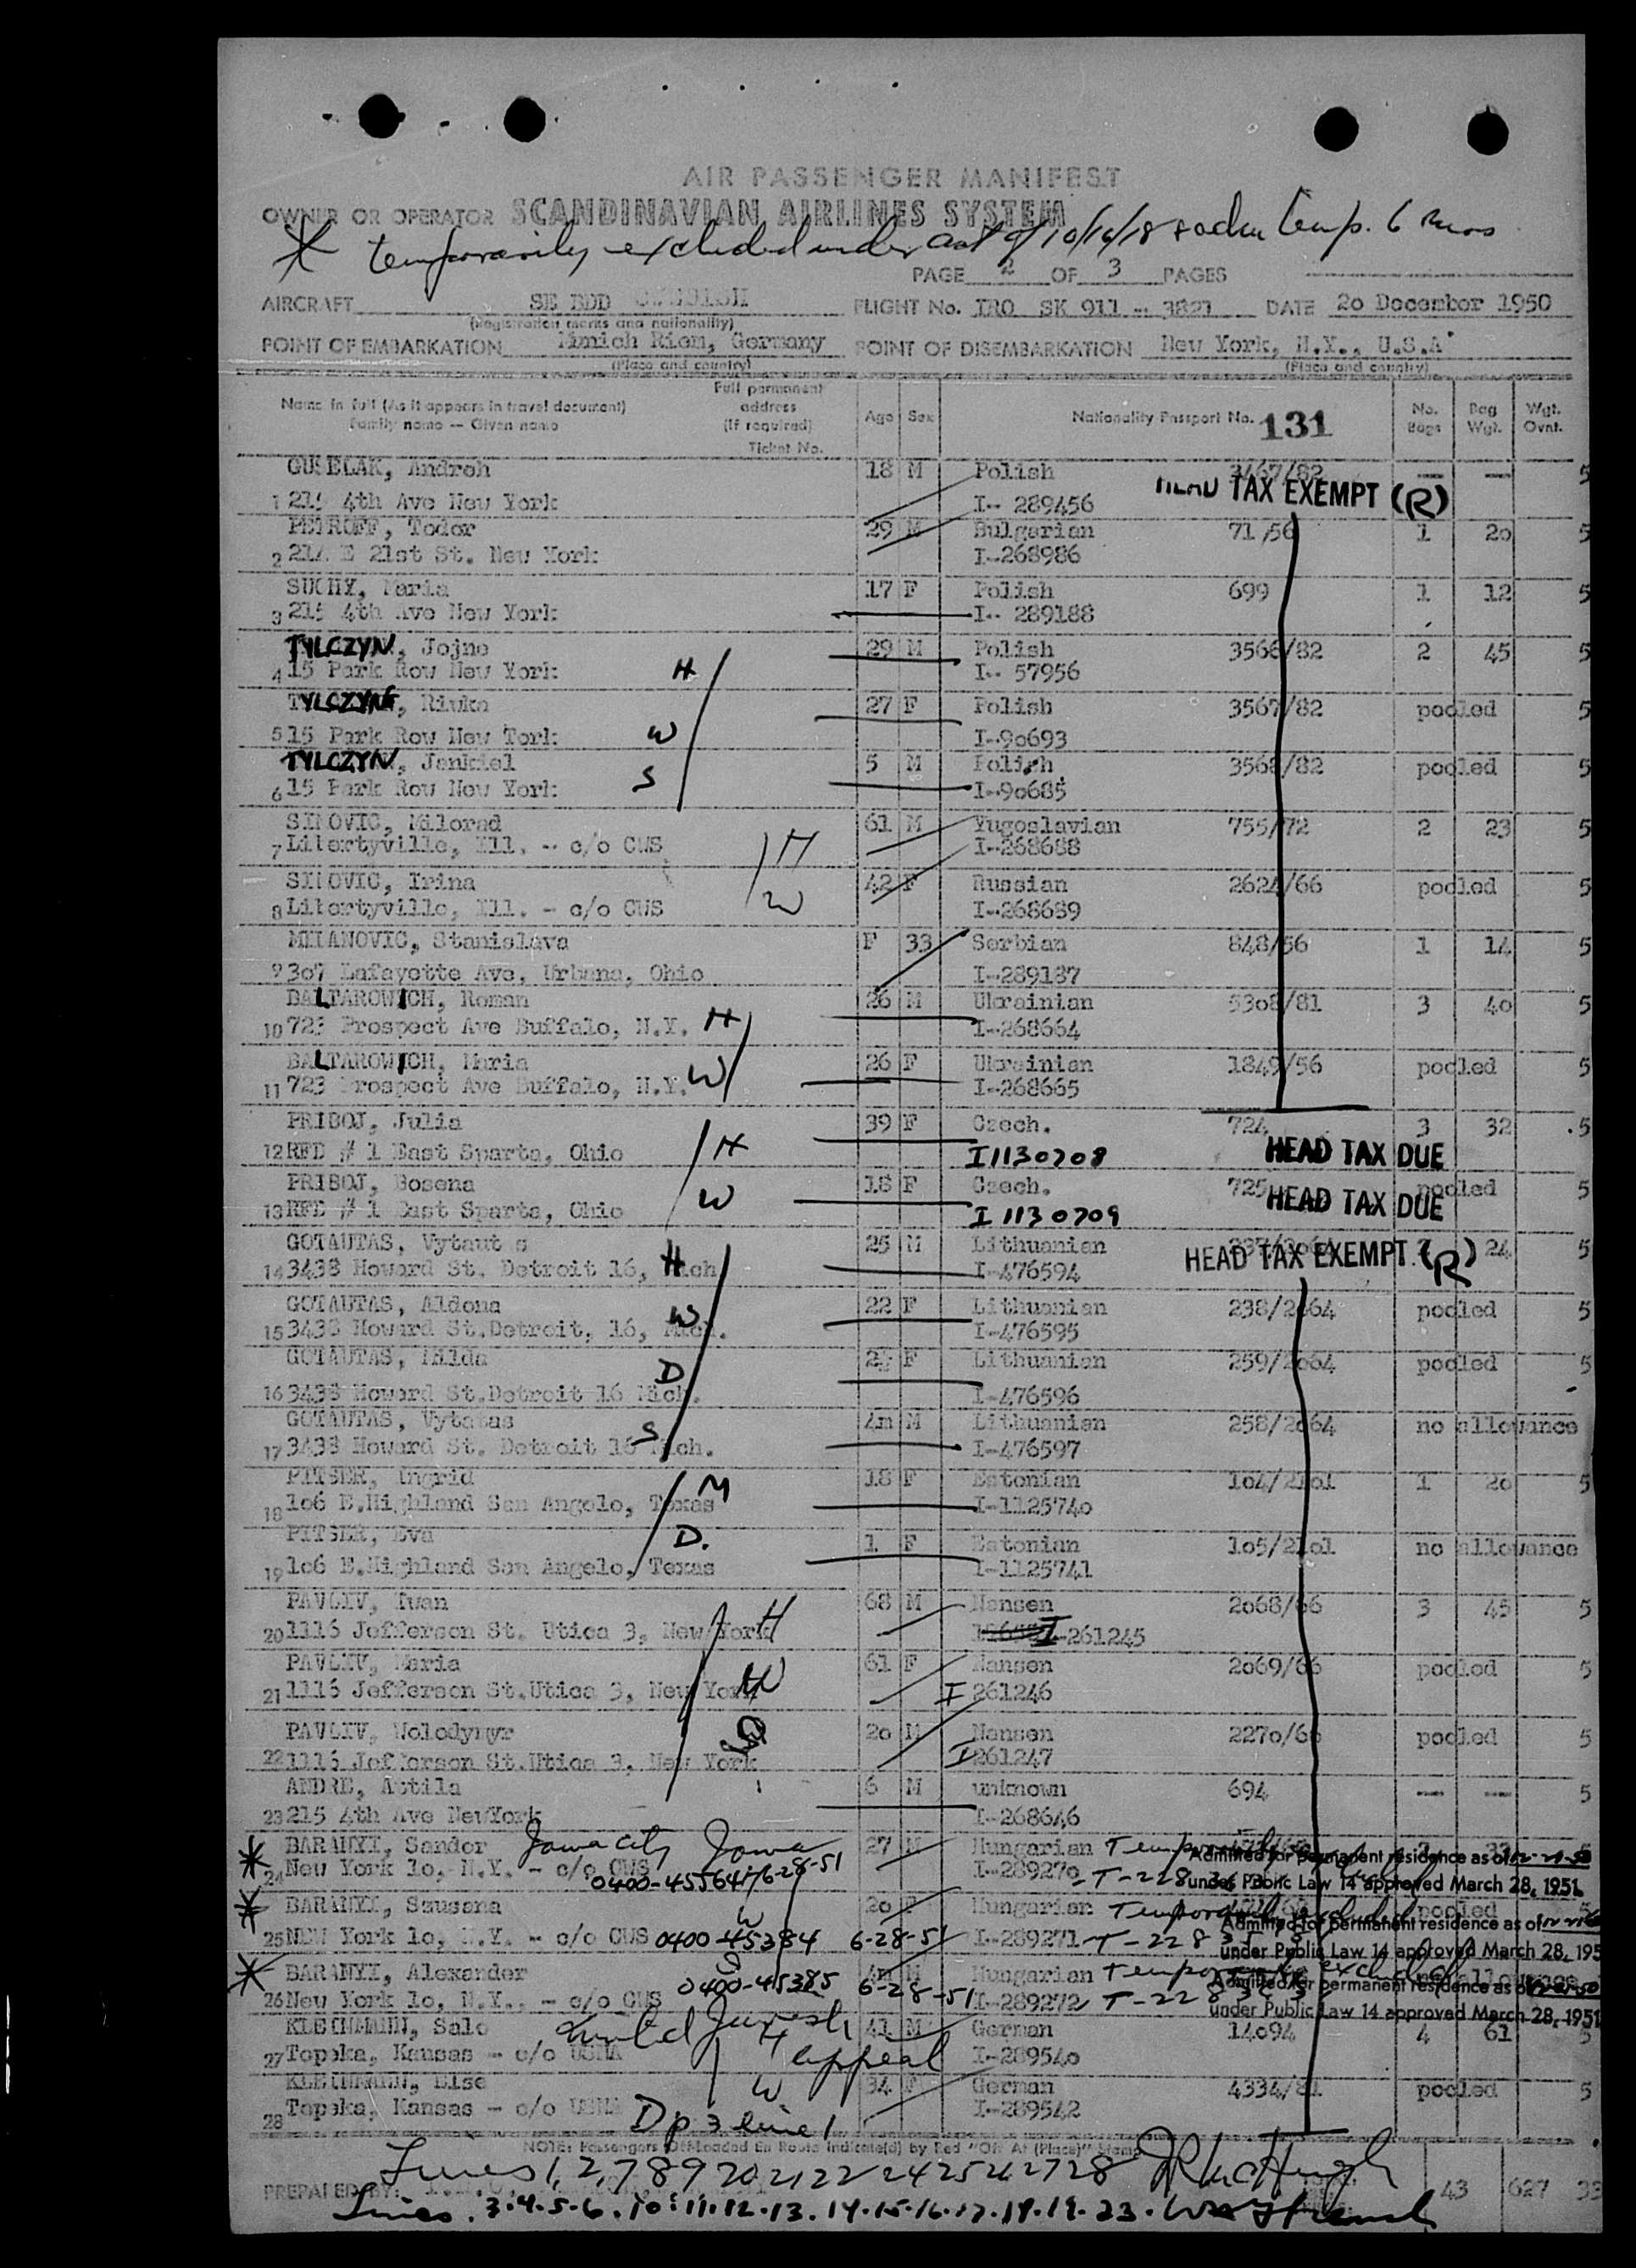 AIR PASSENGER MANIFEST
OWNER OR OPERATOR SCANDINAVIAN AIRLINES SYSTEM
* temporarily excluded under act of 10/16/18 temp. 6 mos
PAGE 2 OF 3 PAGES
AIRCRAFT SE BDD FLIGHT No. IRO SK 911 - 3821 DATE 20 December 1950
(Registration marks and nationality)
POINT OF EMBARKATION Munich Riem, Germany POINT OF DISEMBARKATION New York, N.Y., U.S.A.
(Place and country) (Place and country)
Name in full (As it appears in travel document) Family name — Given name Full permanent address (If required) Ticket No. Age Sex Nationality Passport No. 131 No. Bags Bag Wgt. Wgt. Ovnt.
Androh 18 M Polish 3467/82 — — 5
1 215 4th Ave New York I-- 289456 TAX EXEMPT (R)
PETROFF, Todor 29 M Bulgarian 71/56 1 20 5
2 214 E 21st St. New York I--268986
SUCHY, Maria 17 F Polish 699 1 12 5
3 215 4th Ave New York I-- 289188
TYLCZYN, Jojno 29 M Polish 3566/82 2 45 5
4 15 Park Row New York H I-- 57956
TYLCZYN, Rivka 27 F Polish 3567/82 pooled 5
5 15 Park Row New York W I--90693
TYLCZYN, Jankiel 5 M Polish 3568/82 pooled 5
6 15 Park Row New York S I--90685
SIMOVIC, Milorad 61 M Yugoslavian 755/72 2 23 5
7 Libertyville, Ill. -- c/o CWS H I--268688
SIMOVIC, Irina 42 F Russian 2624/66 pooled 5
8 Libertyville, Ill. - c/o CWS W I--268689
MILANOVIC, Stanislava F 33 Serbian 848/56 1 14 5
9 307 Lafayette Ave, Urbana, Ohio I--289187
BALTAROWICH, Roman 26 M Ukrainian 5308/81 3 40 5
10 723 Prospect Ave Buffalo, N.Y. H I--268664
BALTAROWICH, Maria 26 F Ukrainian 1849/56 pooled 5
11 723 Prospect Ave Buffalo, N.Y. W I--268665
PRIBOJ, Julia 39 F Czech. 724 3 32 5
12 RFD # 1 East Sparta, Ohio H I1130708 HEAD TAX DUE
PRIBOJ, Bosena 18 F Czech. 725 pooled 5
13 RFD # 1 East Sparta, Ohio W I 1130709 HEAD TAX DUE
GOTAUTAS, Vytautas 25 M Lithuanian 24 5
14 3438 Howard St. Detroit 16, Mich H I-476594 HEAD TAX EXEMPT (R)
GOTAUTAS, Aldona 22 F Lithuanian 238/2064 pooled 5
15 3438 Howard St.Detroit, 16, Mich. W I-476595
GOTAUTAS, F Lithuanian 259/2064 pooled 5
16 3438 Howard St.Detroit 16 Mich. D I-476596
GOTAUTAS, Vytatas 4m M Lithuanian 258/2064 no allowance
17 3438 Howard St. Detroit 16 Mich. S I-476597
PITSER, Ingrid 18 F Estonian 104/2101 1 20 5
18 106 E.Highland San Angelo, Texas M I-1125740
PITSER, Eva 1 F Estonian 105/2101 no allowance
19 106 E.Highland San Angelo, Texas D. I-1125741
PAVLIV, Iwan 68 M Nansen 2068/66 3 45 5
20 1116 Jefferson St. Utica 3, New York H I-261245
PAVLIV, Maria 61 F Nansen 2069/66 pooled 5
21 1116 Jefferson St.Utica 3, New York W I 261246
PAVLIV, Wolodymyr 20 M Nansen 2270/66 pooled 5
22 1116 Jefferson St.Utica 3, New York S I 261247
ANDRE, Attila 6 M unknown 694 — — 5
23 215 4th Ave NewYork I--268646
* BARANYI, Sandor Iowa City Iowa 27 M Hungarian Admitted for permanent residence as of
24 New York 10, N.Y. - c/o CWS 6-28-51 I--289270 under Public Law 14 approved March 28, 1951
* BARANYI, Susanna W 20 F Hungarian pooled Admitted for permanent residence as of
25 NEW York 10, N.Y. - c/o CWS 0400-45384 6-28-51 I--289271 under Public Law 14 approved March 28, 195
* BARANYI, Alexander S 4m M Hungarian Admitted for permanent residence as of
26 New York 10, N.Y.. - c/o CWS 0400-45385 6-28-51 I--289272 under Public Law 14 approved March 28, 1951
KLEINMANN, Salo United Jewish H 41 M German 14094 4 61 5
27 Topeka, Kansas - c/o USNA appeal I--289540
KLEINMANN, Else W 34 F German 4334/81 pooled 5
28 Topeka, Kansas - c/o USNA D p 3 line 1 I--289542
NOTE: Passengers Off-loaded En Route Indicate(d) by Red "Off At (Place)" Stamp
Lines 1, 2 7 8 9 20 21 22 24 25 26 27 28
PREPARED BY: 43 627
Lines. 3.4.5.6.10.11.12.13.14.15.16.17.18.19.23.